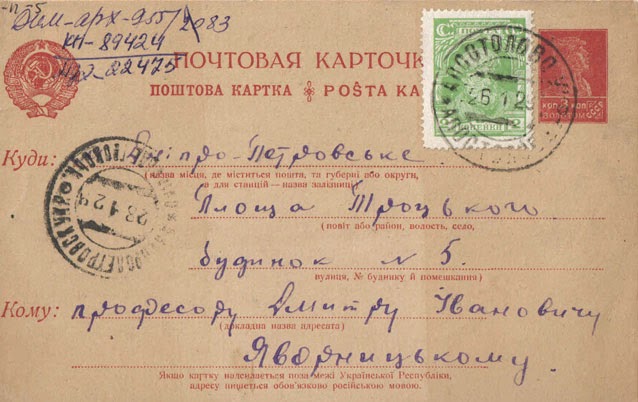 Дим-арх-955/2083
КП-89424
ПОЧТОВАЯ КАРТОЧК
ПОШТОВА КАРТКА ❋ POŜTA KA
ЗОЛОТОМ
Куди: Дніпро-Петровське
(назва місця, де міститься пошта, та губерні або округи,
а для станцій — назва залізниці)
Площа Троцького
(повіт або район, волость, село,
будинок № 5.
вулиця, № будинку й помешкання)
Кому: професору Дмитру Івановичу
(докладна назва адресата)
Яворницькому.
Якщо картку надсилається поза межі Української Республіки,
адресу пишеться обов'язково російською мовою.